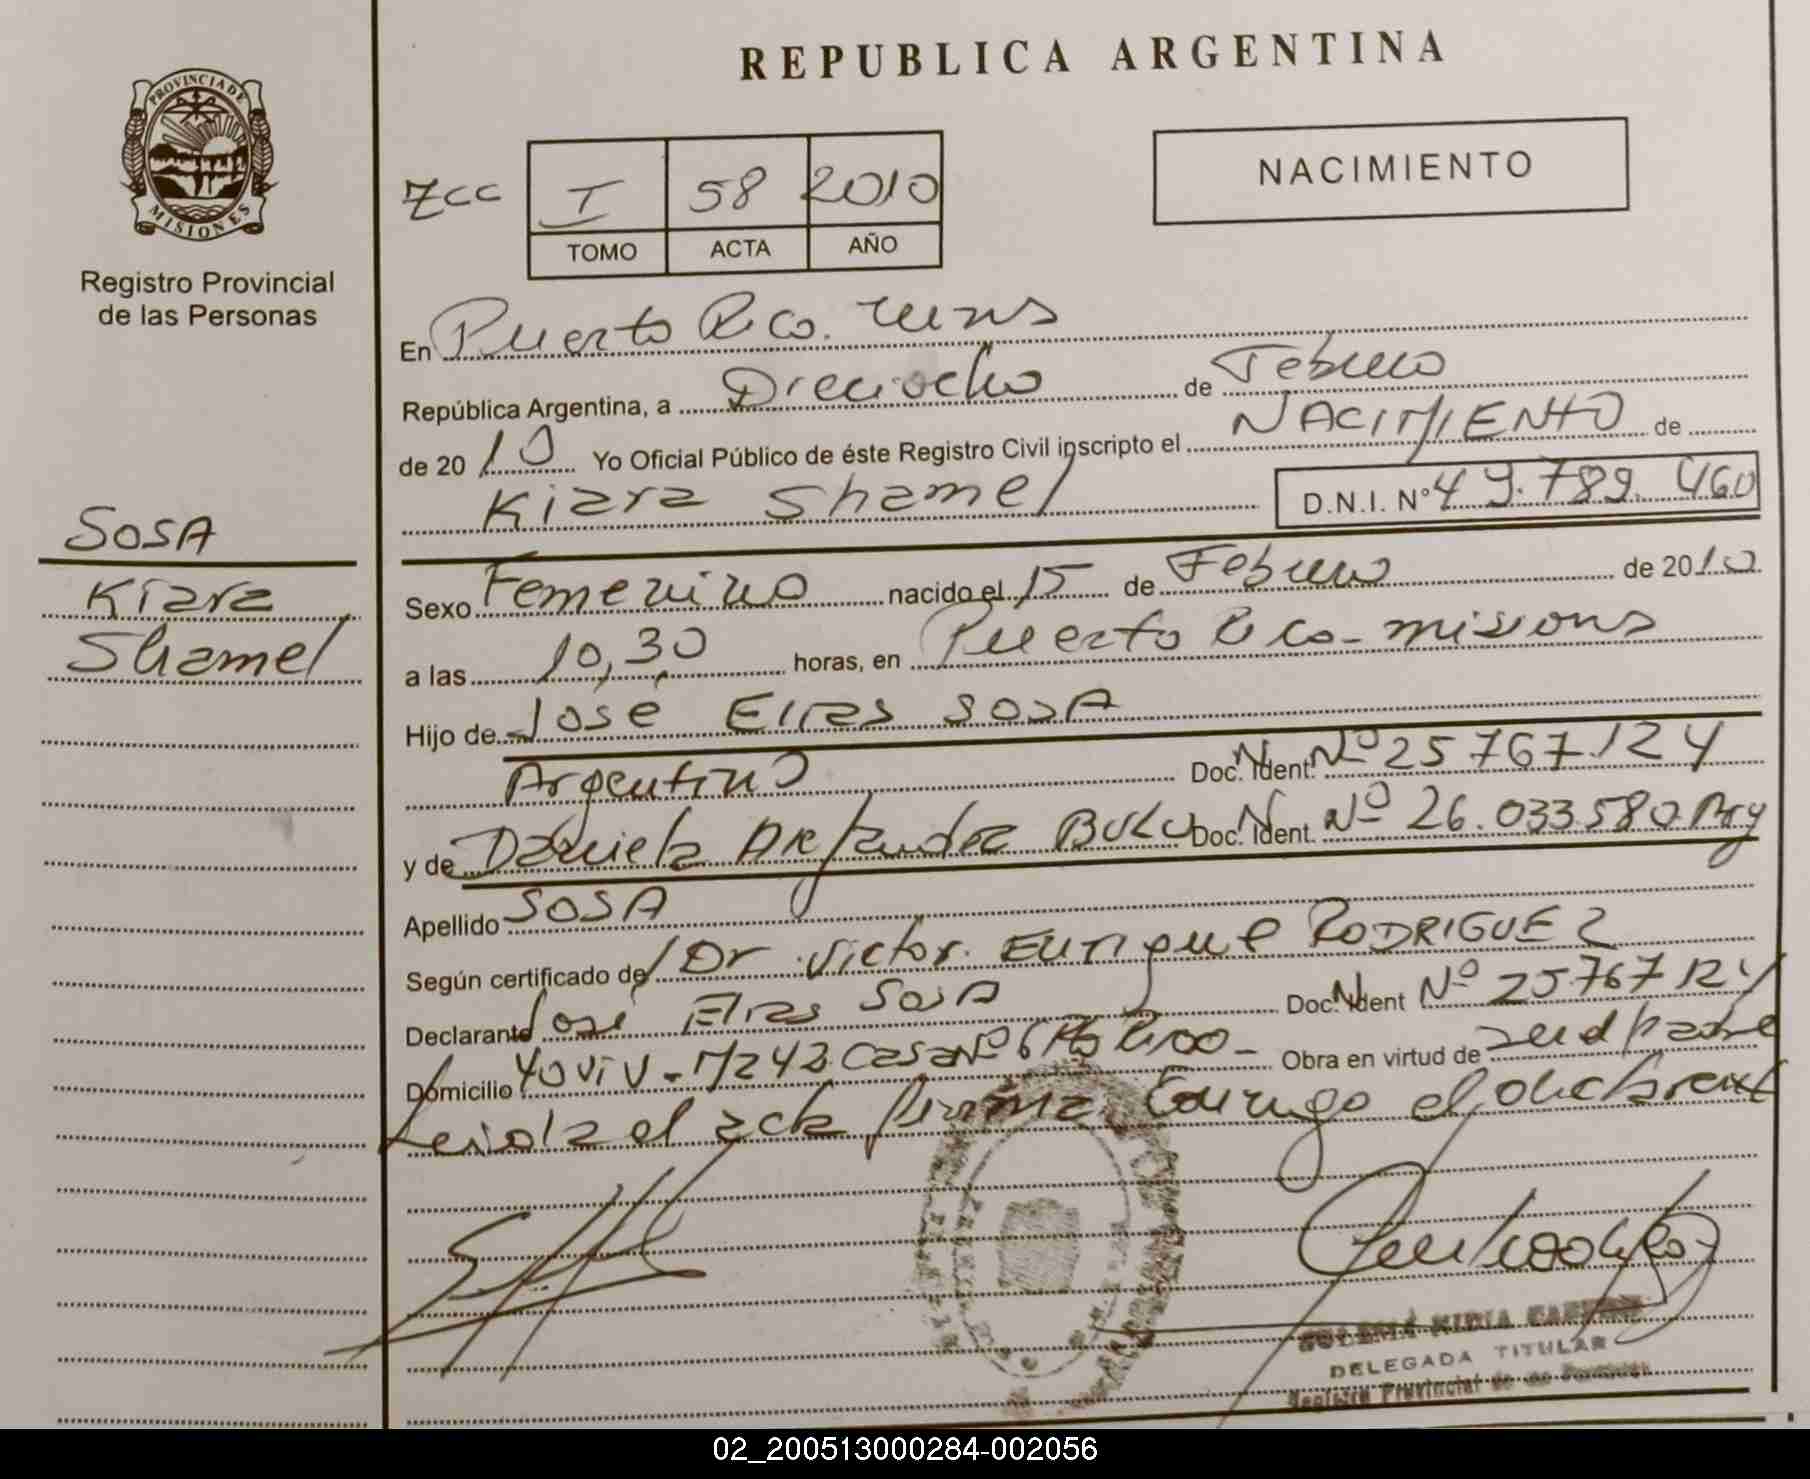 REPUBLICA ARGENTINA
PROVINCIA DE
MISIONES
Registro Provincial
de las Personas
NACIMIENTO
zcc I 58 2010
TOMO ACTA AÑO
En Puerto Rico. mns
República Argentina, a Dieciocho de Febrero
de 2010 Yo Oficial Público de éste Registro Civil inscripto el NACIMIENTO de
Kiara Shamel D.N.I. N° 49.789.460
SOSA
Kiara
Shamel
Sexo Femenino nacido el 15 de Febrero de 2010
a las 10,30 horas, en Puerto Rico - misiones
Hijo de José Elias SOSA
Argentino Doc. Ident. N Nº 25767.124
y de Daniela Alejandra Doc. Ident. N Nº 26.033.580 Arg
Apellido SOSA
Según certificado de Dr Victor Enrique RODRIGUEZ
Declarante José Elias SOSA Doc. Ident N Nº 25767124
Domicilio 40 viv - Casa Nº 6 Pto Rico - Obra en virtud de ser el padre
Leida el acta firma conmigo el declarante
DELEGADA TITULAR
Registro Provincial de
02_200513000284-002056